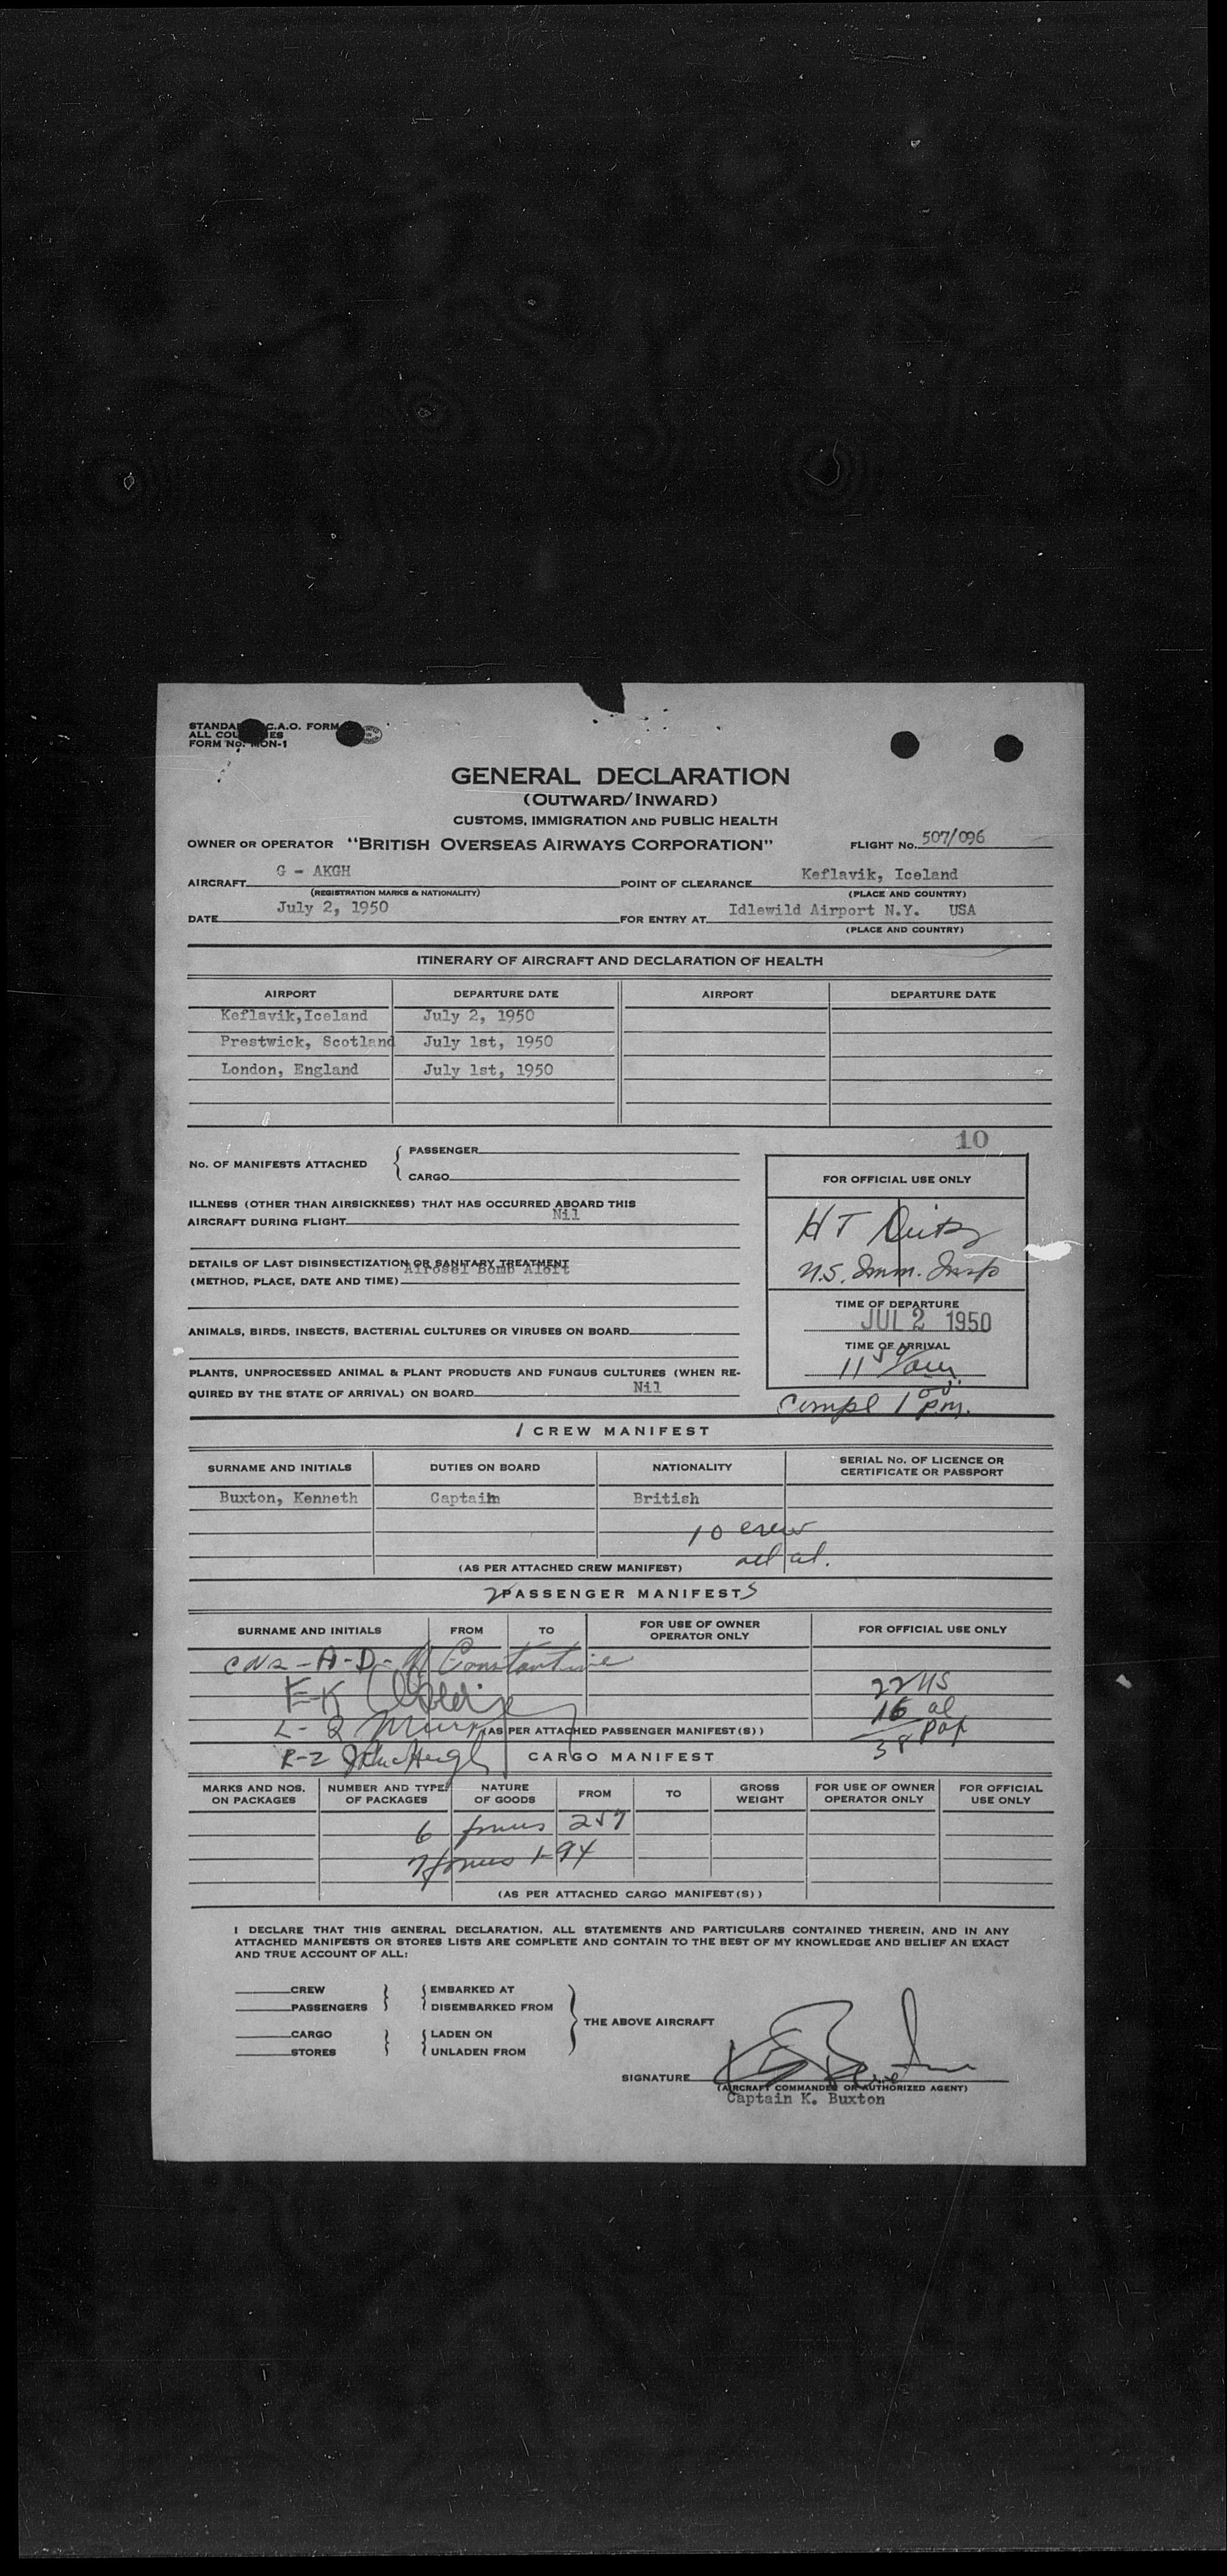 STANDA C.A.O. FORM
ALL COU IES
FORM No. MON-1
GENERAL DECLARATION
(OUTWARD/INWARD)
CUSTOMS, IMMIGRATION AND PUBLIC HEALTH
OWNER OR OPERATOR "BRITISH OVERSEAS AIRWAYS CORPORATION" FLIGHT No. 507/096
AIRCRAFT G - AKGH POINT OF CLEARANCE Keflavik, Iceland
(REGISTRATION MARKS & NATIONALITY) (PLACE AND COUNTRY)
DATE July 2, 1950 FOR ENTRY AT Idlewild Airport N.Y. USA
(PLACE AND COUNTRY)
ITINERARY OF AIRCRAFT AND DECLARATION OF HEALTH
AIRPORT DEPARTURE DATE AIRPORT DEPARTURE DATE
Keflavik,Iceland July 2, 1950
Prestwick, Scotland July 1st, 1950
London, England July 1st, 1950
10
No. OF MANIFESTS ATTACHED { PASSENGER
CARGO
ILLNESS (OTHER THAN AIRSICKNESS) THAT HAS OCCURRED ABOARD THIS
AIRCRAFT DURING FLIGHT Nil
DETAILS OF LAST DISINSECTIZATION OR SANITARY TREATMENT
(METHOD, PLACE, DATE AND TIME) Airosel Bomb Aloft
ANIMALS, BIRDS, INSECTS, BACTERIAL CULTURES OR VIRUSES ON BOARD
PLANTS, UNPROCESSED ANIMAL & PLANT PRODUCTS AND FUNGUS CULTURES (WHEN RE-
QUIRED BY THE STATE OF ARRIVAL) ON BOARD Nil
FOR OFFICIAL USE ONLY
H T
U.S. Imm. Insp
TIME OF DEPARTURE
JUL 2 1950
TIME OF ARRIVAL
11 am
Compl 1 00 pm.
1 CREW MANIFEST
SURNAME AND INITIALS DUTIES ON BOARD NATIONALITY SERIAL No. OF LICENCE OR CERTIFICATE OR PASSPORT
Buxton, Kenneth Captain British
10 crew
all al.
(AS PER ATTACHED CREW MANIFEST)
2 PASSENGER MANIFESTS
SURNAME AND INITIALS FROM TO FOR USE OF OWNER OPERATOR ONLY FOR OFFICIAL USE ONLY
A-D- Constantine
E-K
22 US
L-Q
16 al
(AS PER ATTACHED PASSENGER MANIFEST(S))
38 pax
R-Z
CARGO MANIFEST
MARKS AND NOS. ON PACKAGES NUMBER AND TYPE OF PACKAGES NATURE OF GOODS FROM TO GROSS WEIGHT FOR USE OF OWNER OPERATOR ONLY FOR OFFICIAL USE ONLY
6 forms 257
7 forms I-94
(AS PER ATTACHED CARGO MANIFEST(S))
I DECLARE THAT THIS GENERAL DECLARATION, ALL STATEMENTS AND PARTICULARS CONTAINED THEREIN, AND IN ANY
ATTACHED MANIFESTS OR STORES LISTS ARE COMPLETE AND CONTAIN TO THE BEST OF MY KNOWLEDGE AND BELIEF AN EXACT
AND TRUE ACCOUNT OF ALL:
CREW } { EMBARKED AT
PASSENGERS } { DISEMBARKED FROM
} THE ABOVE AIRCRAFT
CARGO } { LADEN ON
STORES } { UNLADEN FROM
SIGNATURE
(AIRCRAFT COMMANDER OR AUTHORIZED AGENT)
Captain K. Buxton